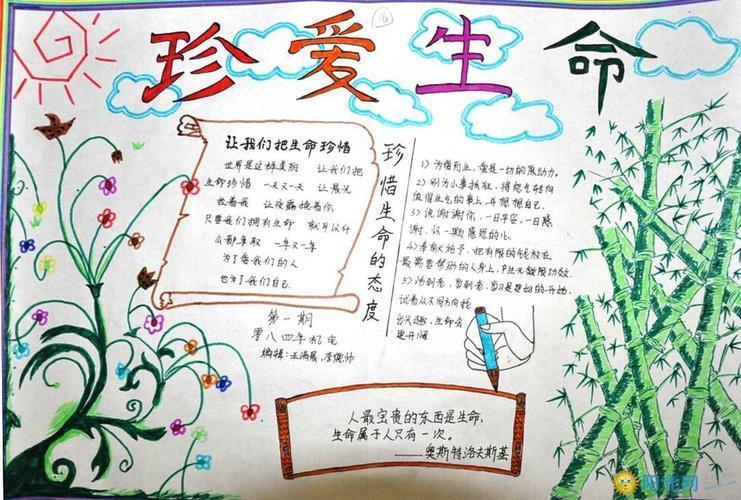 16
珍爱生命
让我们把生命珍惜
世界是这样美丽 让我们把
生命珍惜 一天又一天 让晨光
拉着我 让夜露挽着你
只要我们拥有生命 就可以什
么都争取 一年又一年
为了爱我们的人
也为了我们自己
第一期
零八四年机电
编辑:王海晨、李俊帅
珍惜生命的态度
1)为爱而生,爱是一切的原动力。
2)别为小事抓狂,将怒气转向
值得生气的事上,并想想自己。
3)说谢谢你,一日平安,一日感
谢,怀一颗感恩的心。
4)奉献给予,把有限的
最需要帮助的人身上,产生无穷限功效。
5)活到老,学到老,学习是
试着从不同方向找
出兴趣,生命会
更开阔
人最宝贵的东西是生命,
生命属于人只有一次。
——奥斯特洛夫斯基
阳光网